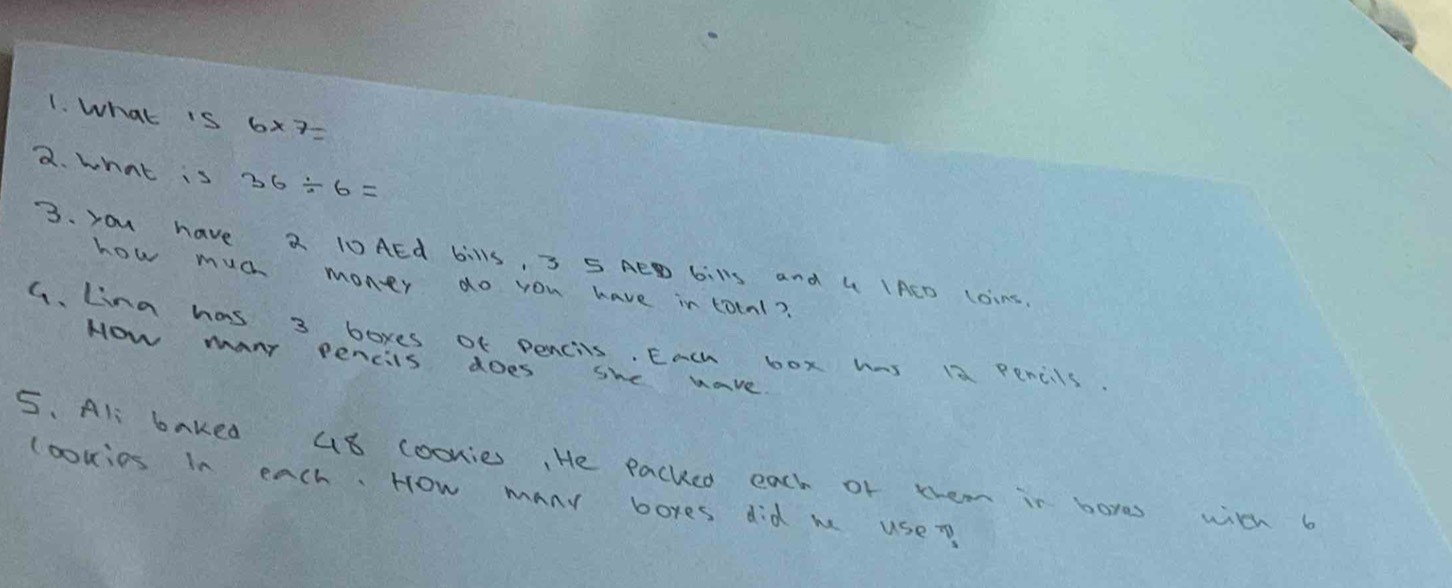 1. What is 6×7=
2. What is 36 ÷ 6 =
3. You have 2 10 AEd bills, 3 5 AED bills and 4 1 AED coins.
how much money do you have in total?
4. Lina has 3 boxes of pencils. Each box has 12 pencils.
How many pencils does she have.
5. Ali baked 48 cookies, He packed each of them in boxes with 6
cookies in each. How many boxes did he use?